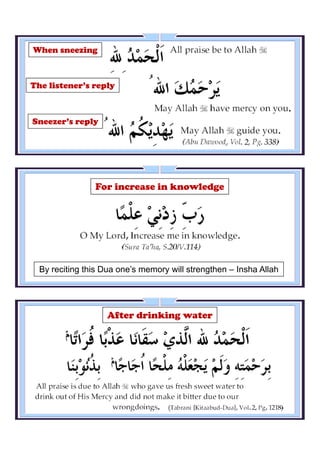 When sneezing
اَلْحَمْدُ لِلّٰهِ
All praise be to Allah ﷻ
The listener's reply
يَرْحَمُكَ اللهُ
May Allah ﷻ have mercy on you.
Sneezer's reply
يَهْدِيْكُمُ اللهُ
May Allah ﷻ guide you.
(Abu Dawood, Vol, 2, Pg, 338)
For increase in knowledge
رَبِّ زِدْنِيْ عِلْمًا
O My Lord, Increase me in knowledge.
(Sura Ta'ha, S.20/V.114)
By reciting this Dua one's memory will strengthen – Insha Allah
After drinking water
اَلْحَمْدُ لِلّٰهِ الَّذِيْ سَقَانَا عَذْبًا فُرَاتًا
بِرَحْمَتِهٖ وَلَمْ يَجْعَلْهُ مِلْحًا اُجَاجًا بِذُنُوْبِنَا
All praise is due to Allah ﷻ who gave us fresh sweet water to
drink out of His Mercy and did not make it bitter due to our
wrongdoings. (Tabrani [Kitaabud-Dua], Vol.2, Pg, 1218)